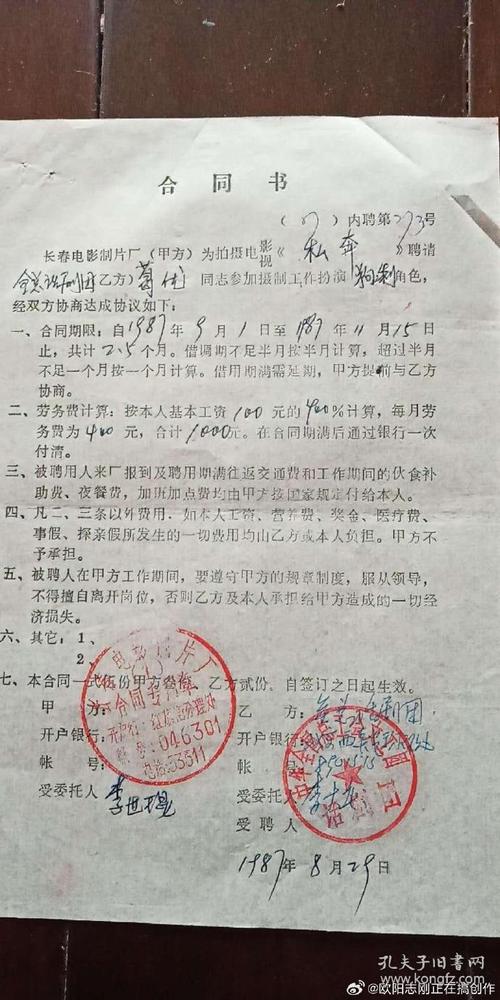 合同书
(87)内聘第273号
长春电影制片厂（甲方）为拍摄电影视《私奔》聘请
全总话剧团（乙方）葛优同志参加摄制工作扮演角色，
经双方协商达成协议如下：
一、合同期限：自1987年9月1日至1987年11月15日
止，共计2.5个月。借调期不足半月按半月计算，超过半月
不足一个月按一个月计算。借用期满需延期，甲方提前与乙方
协商。
二、劳务费计算：按本人基本工资100元的400%计算，每月劳
务费为400元，合计1000元。在合同期满后通过银行一次
付清。
三、被聘用人来厂报到及聘用期满往返交通费和工作期间的伙食补
助费、夜餐费，加班加点费均由甲方按国家规定付给本人。
四、凡二、三条以外费用，如本人工资、营养费、奖金、医疗费、
事假、探亲假所发生的一切费用均由乙方或本人负担。甲方不
予承担。
五、被聘人在甲方工作期间，要遵守甲方的规章制度，服从领导，
不得擅自离开岗位，否则乙方及本人承担给甲方造成的一切经
济损失。
六、其它：1、
2、
七、本合同一式伍份甲方叁份，乙方贰份。自签订之日起生效。
甲方：
乙方：全总话剧团
开户银行：
开户银行：
帐号：
帐号：
受委托人
受委托人
受聘人
电影制片厂
合同专用章
开户行：红旗街分理处
帐号：046301
电话：53511
中华全国总工会
话剧团
1987年8月29日
孔夫子旧书网
@欧阳志刚正在搞创作